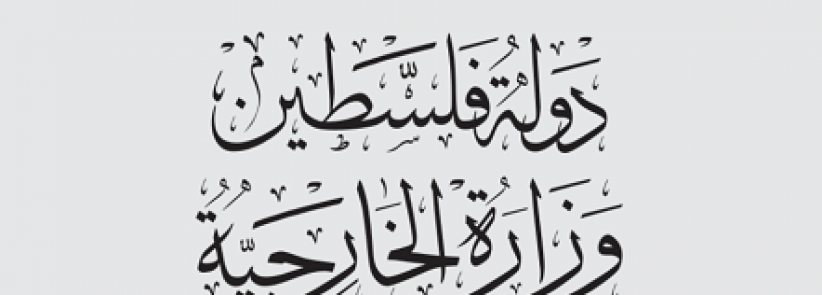 دَولَةُ فَلَسْطين
وَزَارَةُ الخَارِجيَّةُ